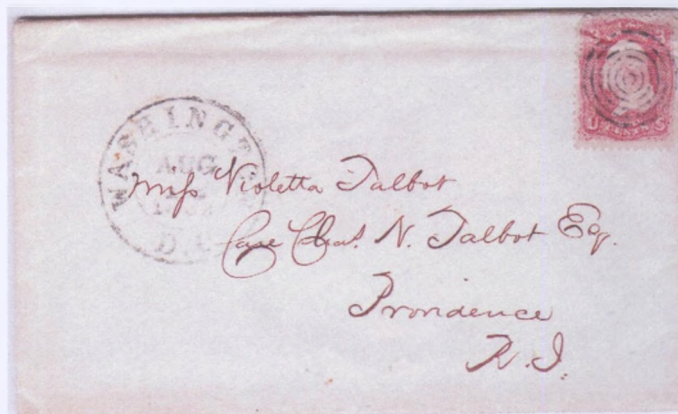 WASHINGTON
AUG
D.C.
Miss Violetta Talbot
Care Chas. N. Talbot Esq.
Providence
R.I.